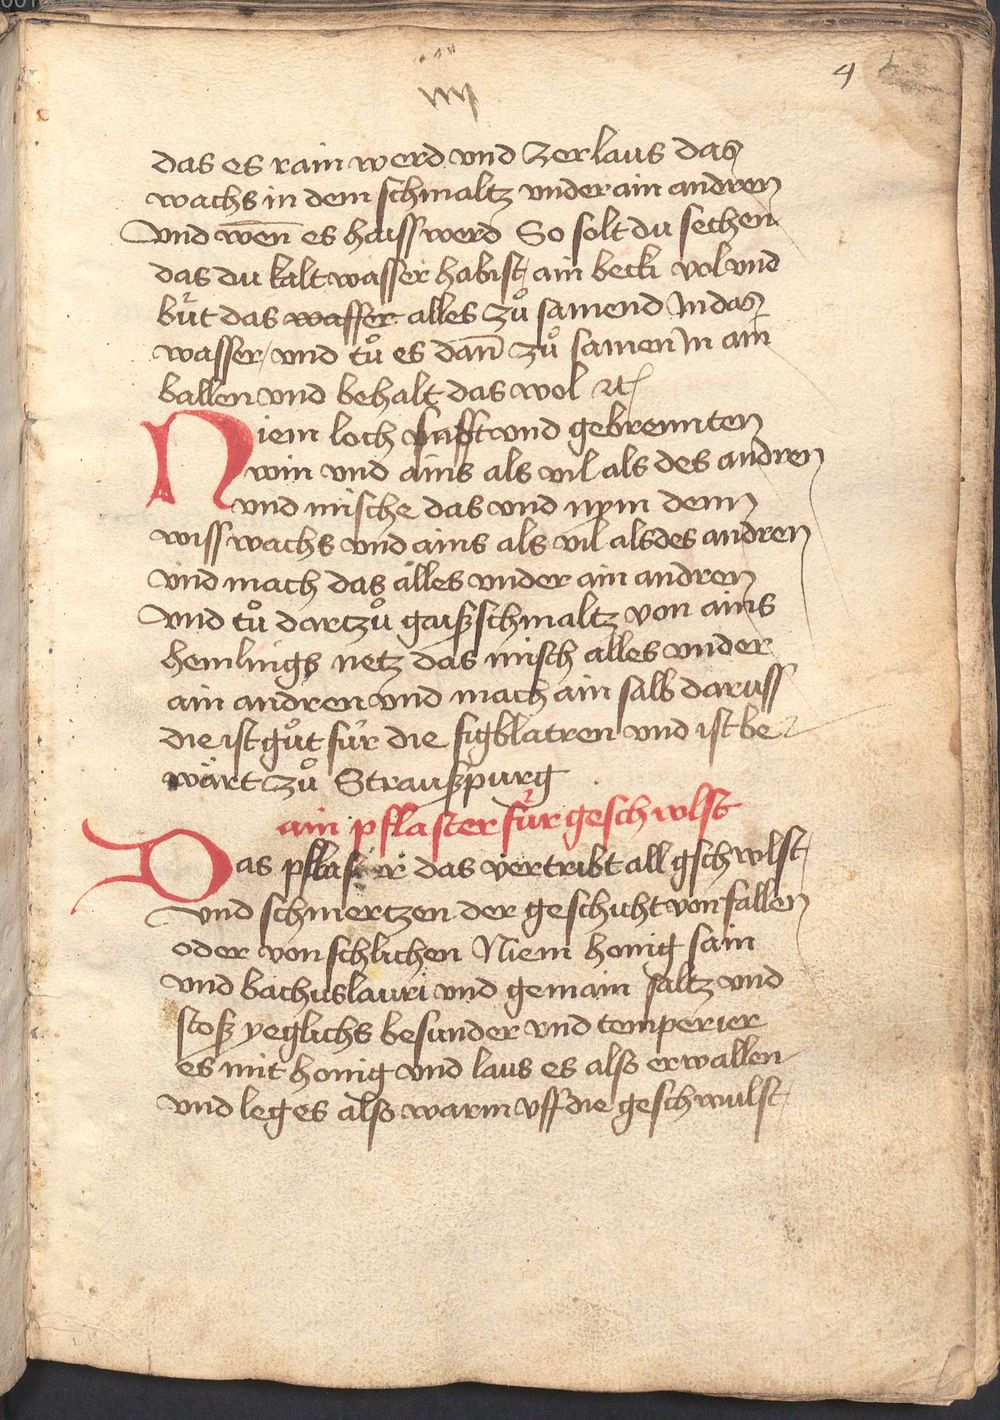 4
iiij
das es rain werd vnd zerlaus das
wachs in dem schmaltz vnder ain andren
Vnd wen̄ es haiss werd So solt du sechen
das du kalt wasser habist ain becki vol vnd
bu̍t das wasser alles zuͦ samend In das
wasser / vnd tuͦ es dan̄ zuͦ samen In ain
ballen vnd behalt das wol ꝛc
Niem loch safft vnd gebrennten
win vnd ains als vil als des andren
vnd mische das vnd nym denn
wiss wachs vnd ains als vil als des andren
vnd mach das alles vnder ain andren
Vnd tuͦ dartzuͦ gaiß schmaltz von ains
hemlings netz das misch alles vnder
ain andren vnd mach ain salb daruss
die ist guͦt für die figblatren vnd ist be
wärt zuͦ Straußpurg
ain pflaster für geschwlst
Das pflaster das vertribt all gschwlst
vnd schmertzen der geschicht von fallen
oder von schlichen Niem honig sain
vnd bachuslauri vnd gemain saltz vnd
stoß yeglichs besunder vnd temperier
es mit honig vnd laus es also erwallen
vnd leg es also warm vff die geschwulst